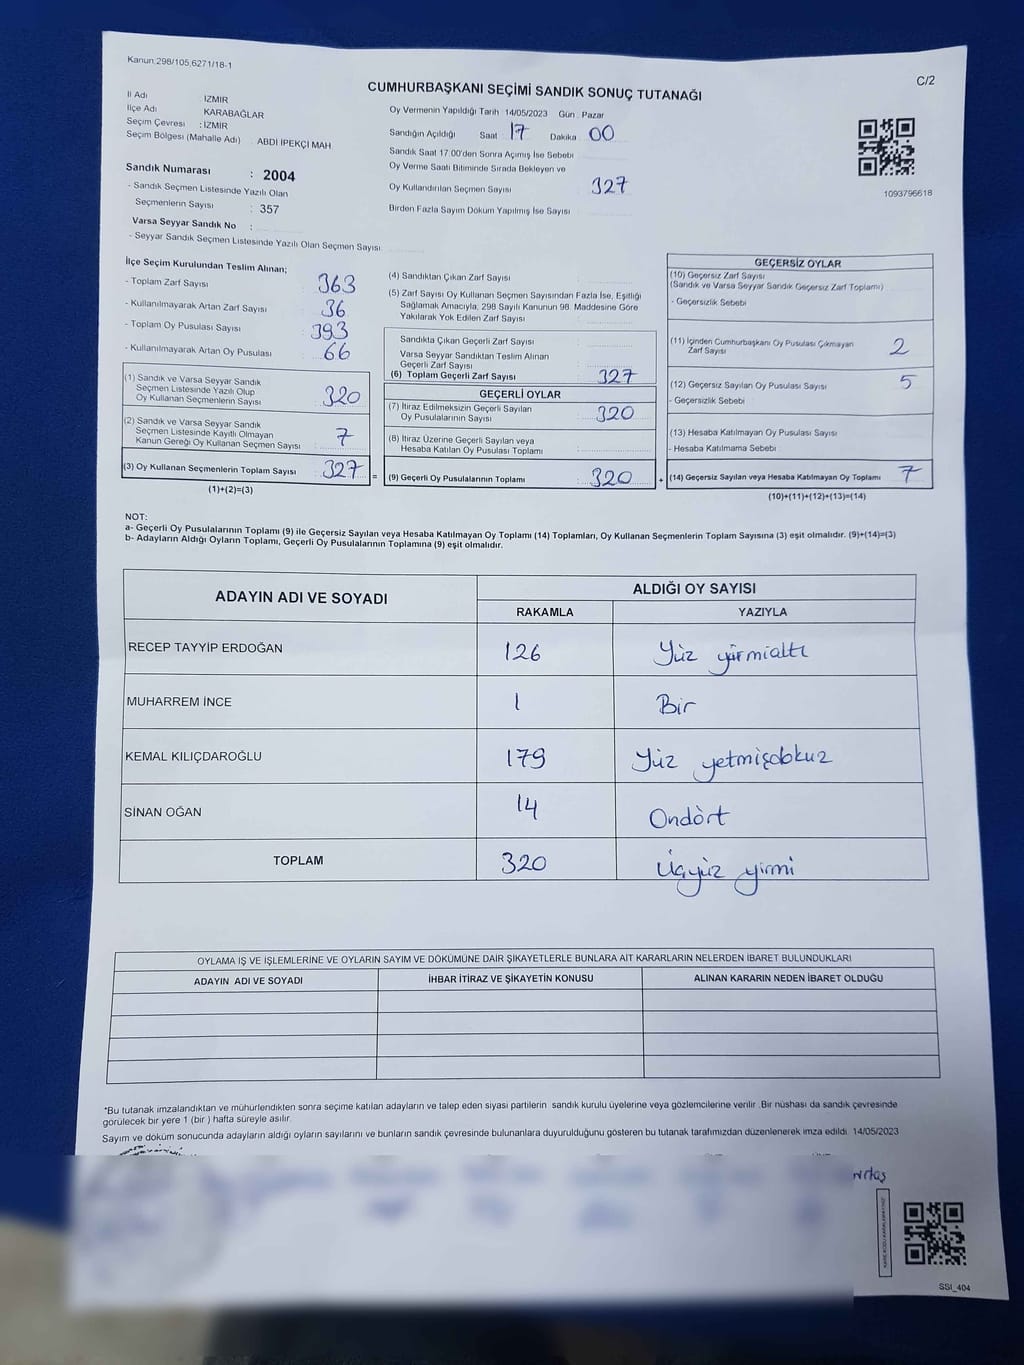 Kanun 298/105,6271/18-1
C/2
CUMHURBAŞKANI SEÇİMİ SANDIK SONUÇ TUTANAĞI
İl Adı : İZMİR
İlçe Adı : KARABAĞLAR
Seçim Çevresi : İZMİR
Seçim Bölgesi (Mahalle Adı) : ABDİ İPEKÇİ MAH.
Oy Vermenin Yapıldığı Tarih 14/05/2023 Gün : Pazar
Sandığın Açıldığı Saat 17 Dakika 00
Sandık Saat 17.00'den Sonra Açımış İse Sebebi
Oy Verme Saati Bitiminde Sırada Bekleyen ve
Oy Kullandırılan Seçmen Sayısı 327
Birden Fazla Sayım Döküm Yapılmış İse Sayısı
1093796618
Sandık Numarası : 2004
- Sandık Seçmen Listesinde Yazılı Olan
Seçmenlerin Sayısı : 357
Varsa Seyyar Sandık No :
- Seyyar Sandık Seçmen Listesinde Yazılı Olan Seçmen Sayısı
İlçe Seçim Kurulundan Teslim Alınan;
- Toplam Zarf Sayısı : 363
- Kullanılmayarak Artan Zarf Sayısı : 36
- Toplam Oy Pusulası Sayısı : 393
- Kullanılmayarak Artan Oy Pusulası : 66
(1) Sandık ve Varsa Seyyar Sandık
Seçmen Listesinde Yazılı Olup
Oy Kullanan Seçmenlerin Sayısı : 320
(2) Sandık ve Varsa Seyyar Sandık
Seçmen Listesinde Kayıtlı Olmayan
Kanun Gereği Oy Kullanan Seçmen Sayısı : 7
(3) Oy Kullanan Seçmenlerin Toplam Sayısı : 327 =
(1)+(2)=(3)
(4) Sandıktan Çıkan Zarf Sayısı :
(5) Zarf Sayısı Oy Kullanan Seçmen Sayısından Fazla İse, Eşitliği
Sağlamak Amacıyla, 298 Sayılı Kanunun 98. Maddesine Göre
Yakılarak Yok Edilen Zarf Sayısı :
Sandıkta Çıkan Geçerli Zarf Sayısı :
Varsa Seyyar Sandıktan Teslim Alınan
Geçerli Zarf Sayısı :
(6) Toplam Geçerli Zarf Sayısı : 327
GEÇERLİ OYLAR
(7) İtiraz Edilmeksizin Geçerli Sayılan
Oy Pusulalarının Sayısı : 320
(8) İtiraz Üzerine Geçerli Sayılan veya
Hesaba Katılan Oy Pusulası Toplamı :
(9) Geçerli Oy Pusulalarının Toplamı : 320 +
GEÇERSİZ OYLAR
(10) Geçersiz Zarf Sayısı
(Sandık ve Varsa Seyyar Sandık Geçersiz Zarf Toplamı) :
- Geçersizlik Sebebi
(11) İçinden Cumhurbaşkanı Oy Pusulası Çıkmayan
Zarf Sayısı : 2
(12) Geçersiz Sayılan Oy Pusulası Sayısı : 5
- Geçersizlik Sebebi
(13) Hesaba Katılmayan Oy Pusulası Sayısı :
- Hesaba Katılmama Sebebi
(14) Geçersiz Sayılan veya Hesaba Katılmayan Oy Toplamı : 7
(10)+(11)+(12)+(13)=(14)
NOT:
a- Geçerli Oy Pusulalarının Toplamı (9) ile Geçersiz Sayılan veya Hesaba Katılmayan Oy Toplamı (14) Toplamları, Oy Kullanan Seçmenlerin Toplam Sayısına (3) eşit olmalıdır. (9)+(14)=(3)
b- Adayların Aldığı Oyların Toplamı, Geçerli Oy Pusulalarının Toplamına (9) eşit olmalıdır.
ADAYIN ADI VE SOYADI
ALDIĞI OY SAYISI
RAKAMLA YAZIYLA
RECEP TAYYİP ERDOĞAN 126 Yüz yirmialtı
MUHARREM İNCE 1 Bir
KEMAL KILIÇDAROĞLU 179 Yüz yetmişdokuz
SİNAN OĞAN 14 Ondört
TOPLAM 320 Üçyüz yirmi
OYLAMA İŞ VE İŞLEMLERİNE VE OYLARIN SAYIM VE DÖKÜMÜNE DAİR ŞİKAYETLERLE BUNLARA AİT KARARLARIN NELERDEN İBARET BULUNDUKLARI
ADAYIN ADI VE SOYADI İHBAR İTİRAZ VE ŞİKAYETİN KONUSU ALINAN KARARIN NEDEN İBARET OLDUĞU
*Bu tutanak imzalandıktan ve mühürlendikten sonra seçime katılan adayların ve talep eden siyasi partilerin sandık kurulu üyelerine veya gözlemcilerine verilir .Bir nüshası da sandık çevresinde
görülecek bir yere 1 (bir ) hafta süreyle asılır.
Sayım ve döküm sonucunda adayların aldığı oyların sayılarını ve bunların sandık çevresinde bulunanlara duyurulduğunu gösteren bu tutanak tarafımızdan düzenlenerek imza edildi. 14/05/2023
SSI_404